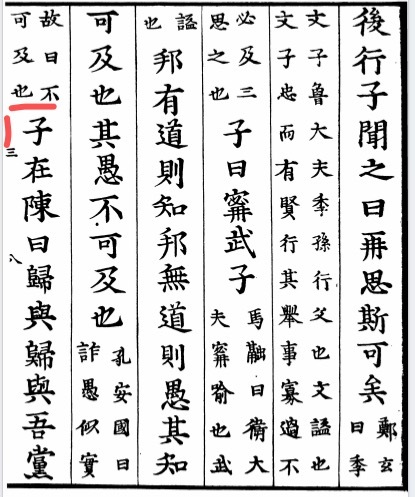 後行子聞之曰再思斯可矣鄭玄曰季
文子魯大夫季孫行父也文諡也
文子忠而有賢行其舉事寡過不
必及三思之也子曰甯武子馬融曰衛大夫甯喻也武
諡也邦有道則知邦無道則愚其知
可及也其愚不可及也孔安國曰詐愚似實
故曰不可及也子在陳曰歸與歸與吾黨
三
八